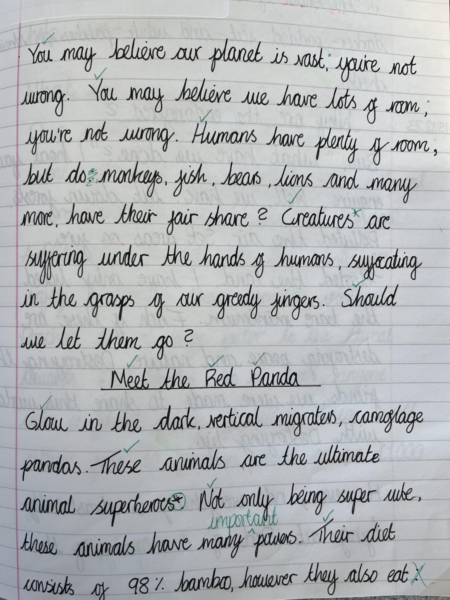 You may believe our planet is vast; you're not
wrong. You may believe we have lots of room;
you're not wrong. Humans have plenty of room,
but do: monkeys, fish, bears, lions and many
more, have their fair share? Creatures* are
suffering under the hands of humans, suffocating
in the grasps of our greedy fingers. Should
we let them go?
Meet the Red Panda
Glow in the dark, vertical migraters, camoflage
pandas. These animals are the ultimate
animal superheroes. Not only being super cute,
important
these animals have many ^ powers. Their diet
consists of 98% bamboo, however they also eat